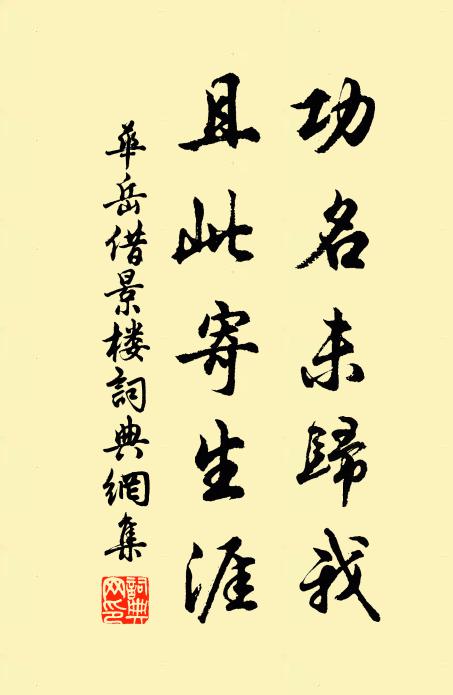 功名未歸我
且此寄生涯
華岳借景楼詞典網集
詞典网印